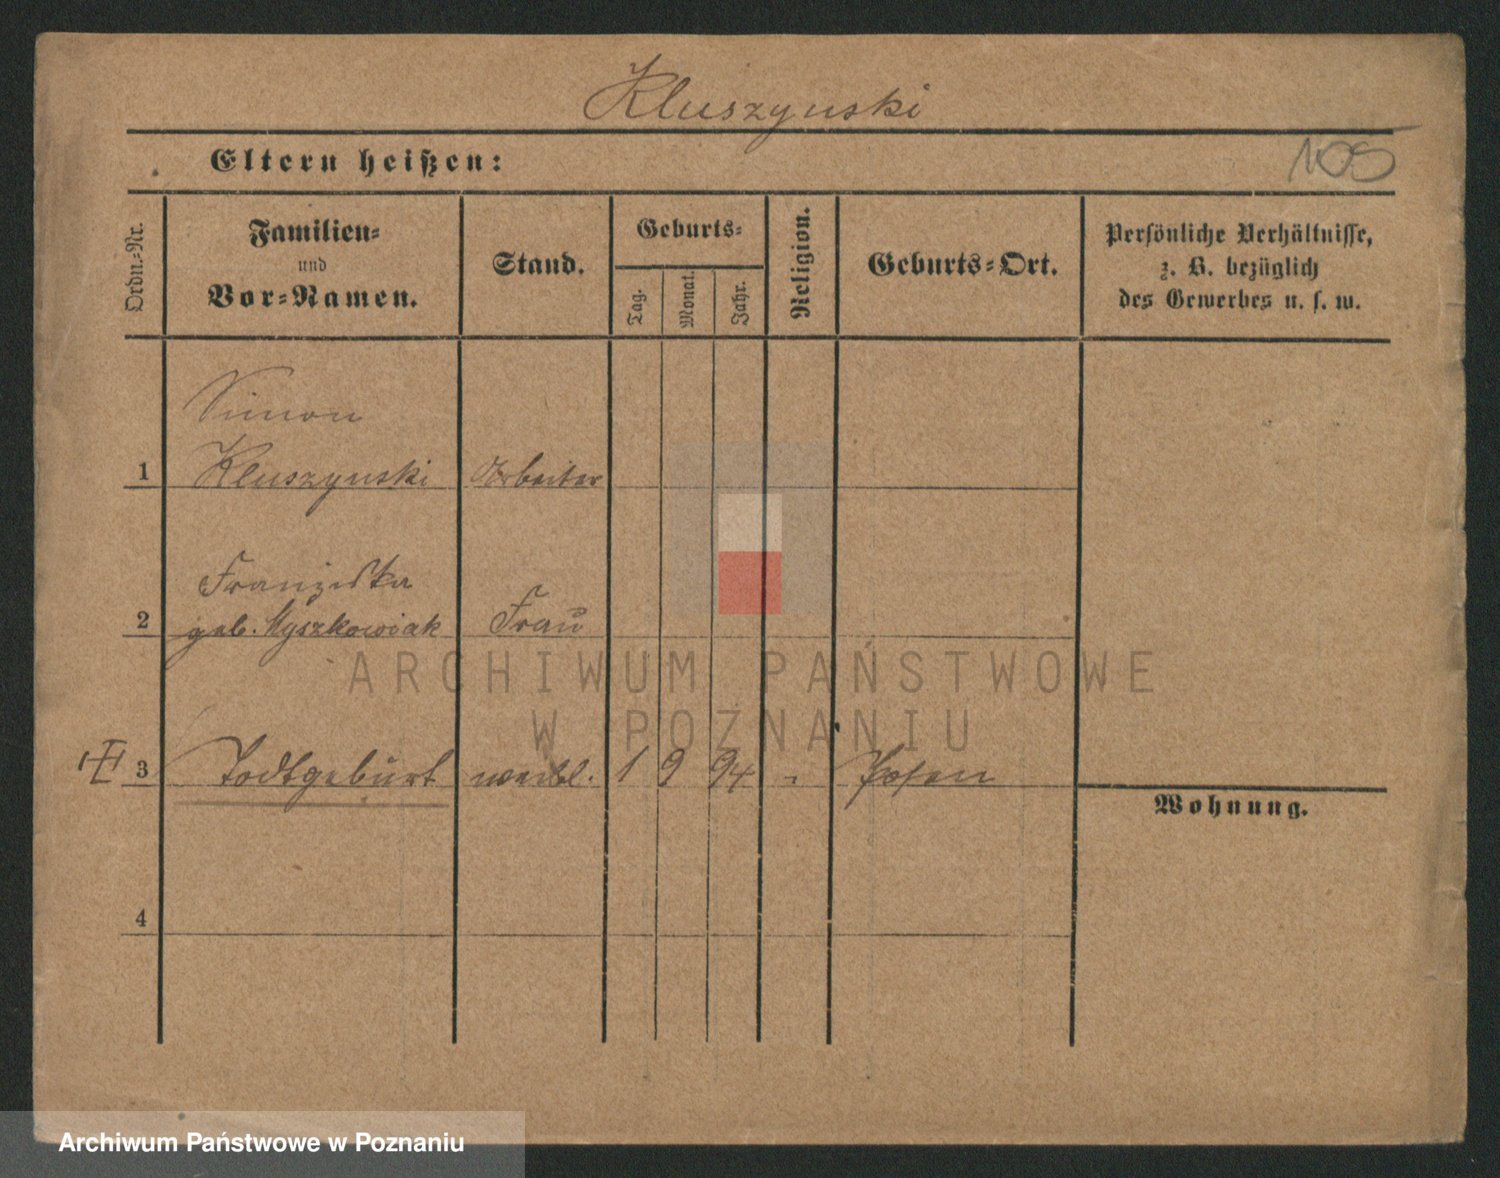 Kluszynski
Eltern heißen:
105
Ordn.-Nr.
Familien-
und
Vor-Namen.
Stand.
Geburts-
Tag.
Monat.
Jahr.
Religion.
Geburts-Ort.
Persönliche Verhältnisse,
z. B. bezüglich
des Gewerbes u. s. w.
Simon
1 Kluszynski Arbeiter
Franziska
2 geb. Myszkowiak Frau
ARCHIWUM PAŃSTWOWE
W POZNANIU
3 Todtgeburt weibl. 1 9 94 - Posen
Wohnung.
4
Archiwum Państwowe w Poznaniu